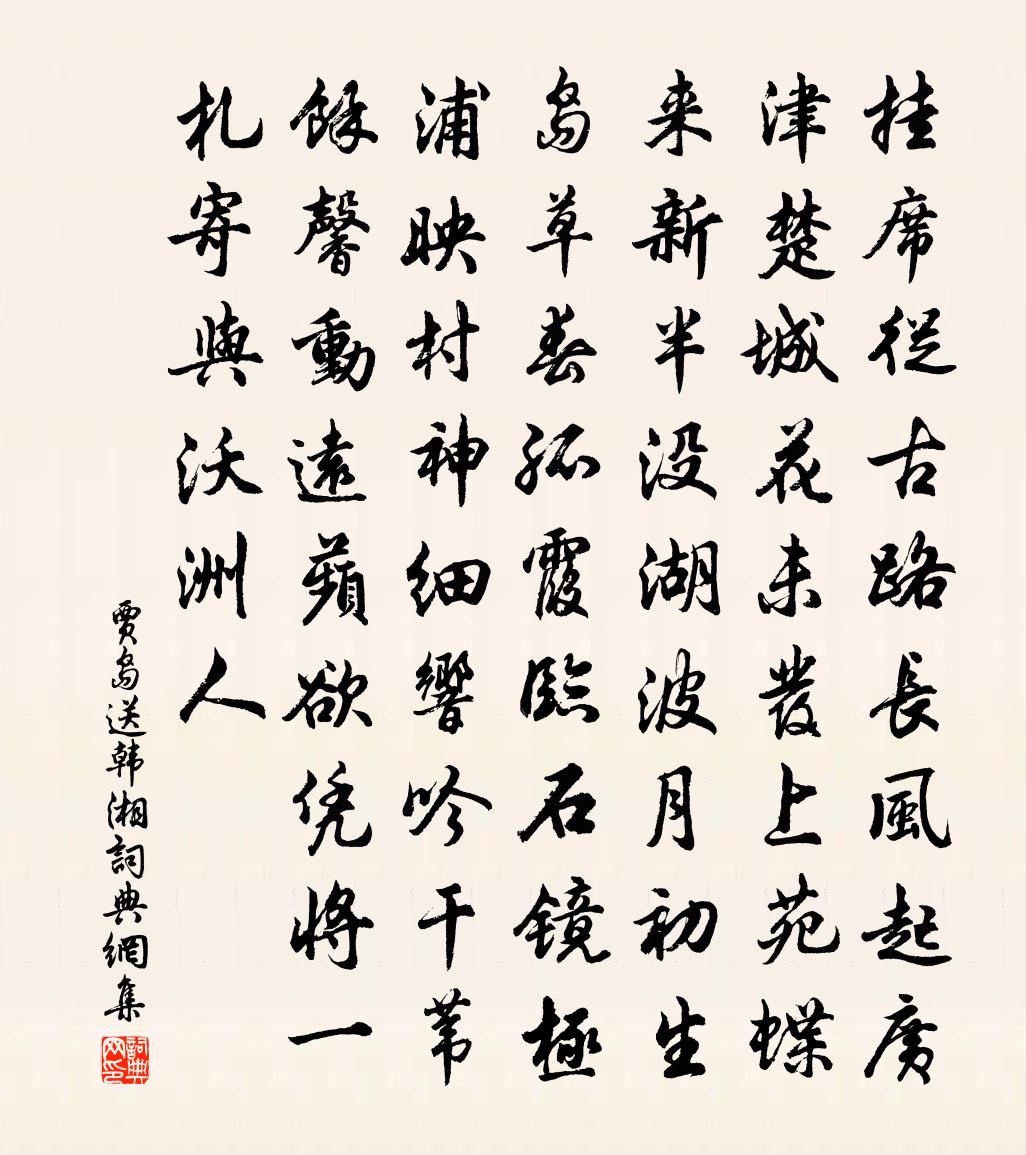 挂席從古路長風起廣
津楚城花未發上苑蝶
来新半没湖波月初生
島草春孤霞臨石镜極
浦映村神细響吟干苇
餘馨動遠蘋欲凭將一
札寄與沃洲人
贾島送韩湘詞典網集
詞典网印